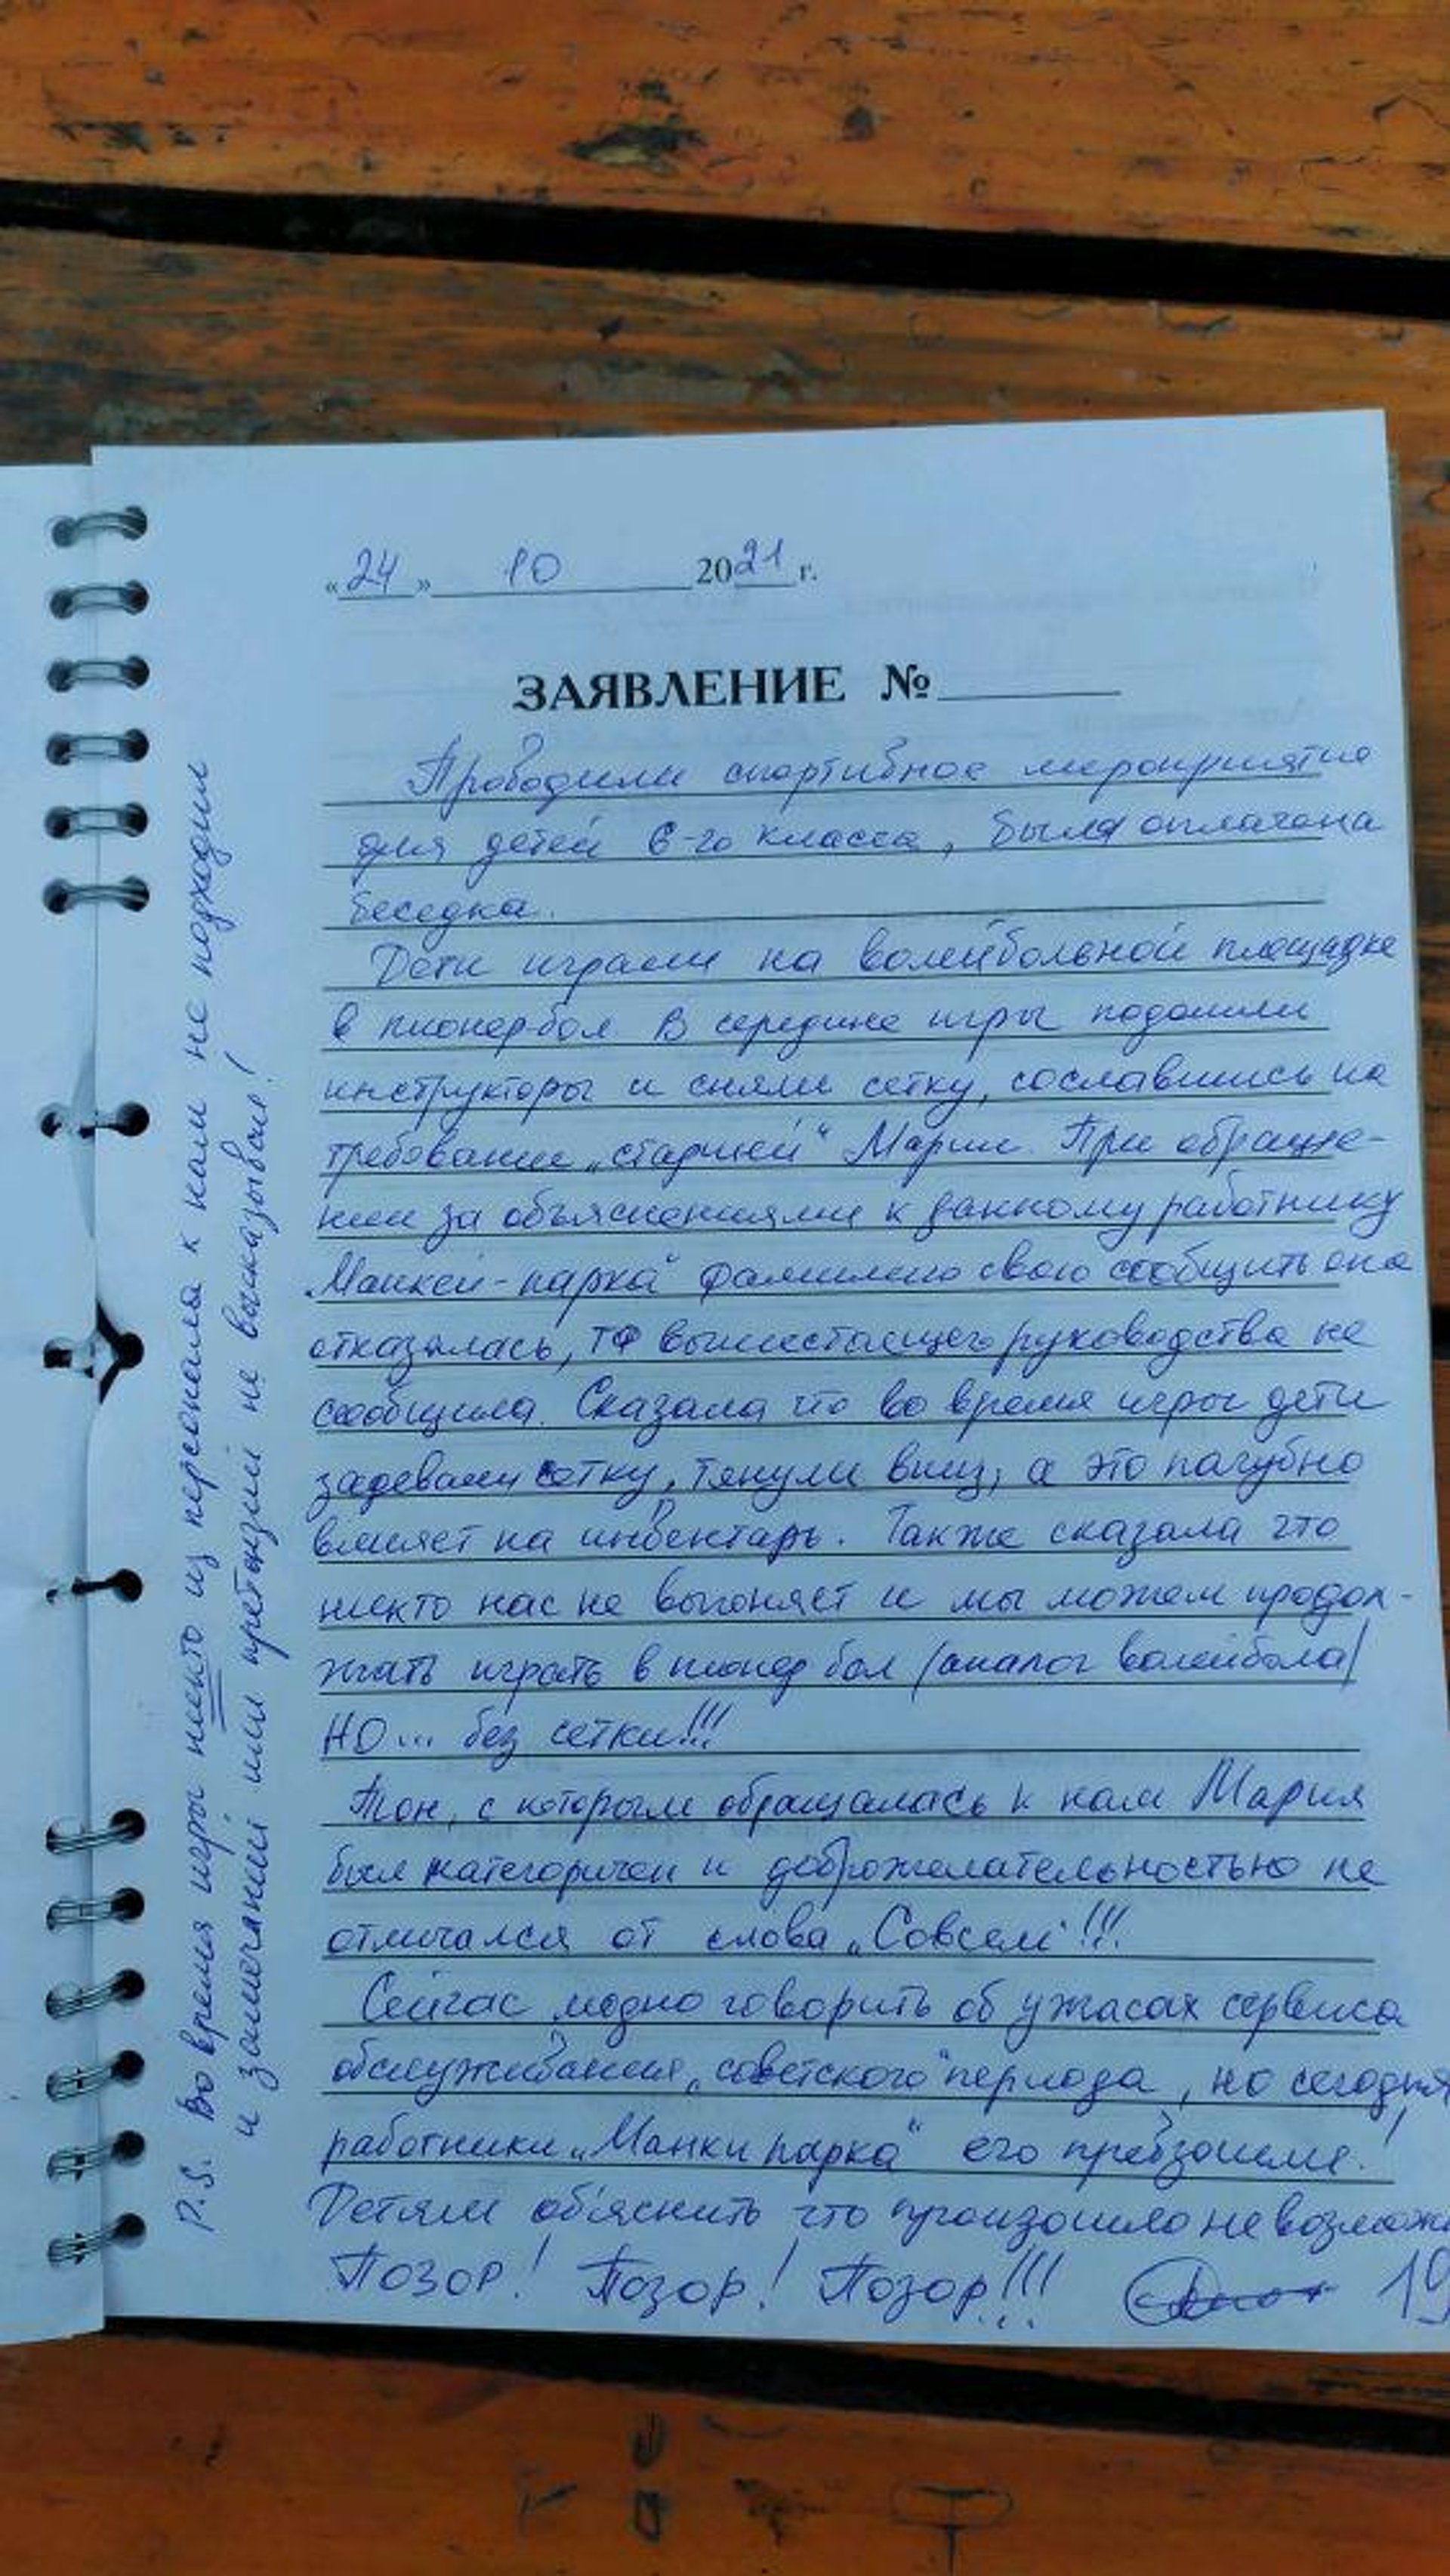 «24» 10 2021 г.
ЗАЯВЛЕНИЕ №
Проводили спортивное мероприятие
для детей 6-го класса, была оплачена
беседка.
Дети играли на волейбольной площадке
в пионербол. В середине игры подошли
инструкторы и сняли сетку, сославшись на
требование „старшей“ Марии. При обраще-
нии за объяснениями к данному работнику
„Манкей-парка“ фамилию свою сообщить она
отказалась, тф вышестоящего руководства не
сообщила. Сказала что во время игры дети
задевали сетку, тянули вниз, а это пагубно
влияет на инвентарь. Также сказала что
никто нас не выгоняет и мы можем продол-
жать играть в пионербол (аналог волейбола)
НО... без сетки!!!
Тон, с которым обращалась к нам Мария
был категоричен и доброжелательностью не
отличался от слова „Совсем“!!!
Сейчас модно говорить об ужасах сервиса
обслуживания „советского“ периода, но сегодня
работники „Манки парка“ его превзошли!
Детям об'яснить что произошло невозможн
Позор! Позор! Позор!!! 19
P.S. Во время игры никто из персонала к нам не подходил
и замечаний или претензий не высказывал!